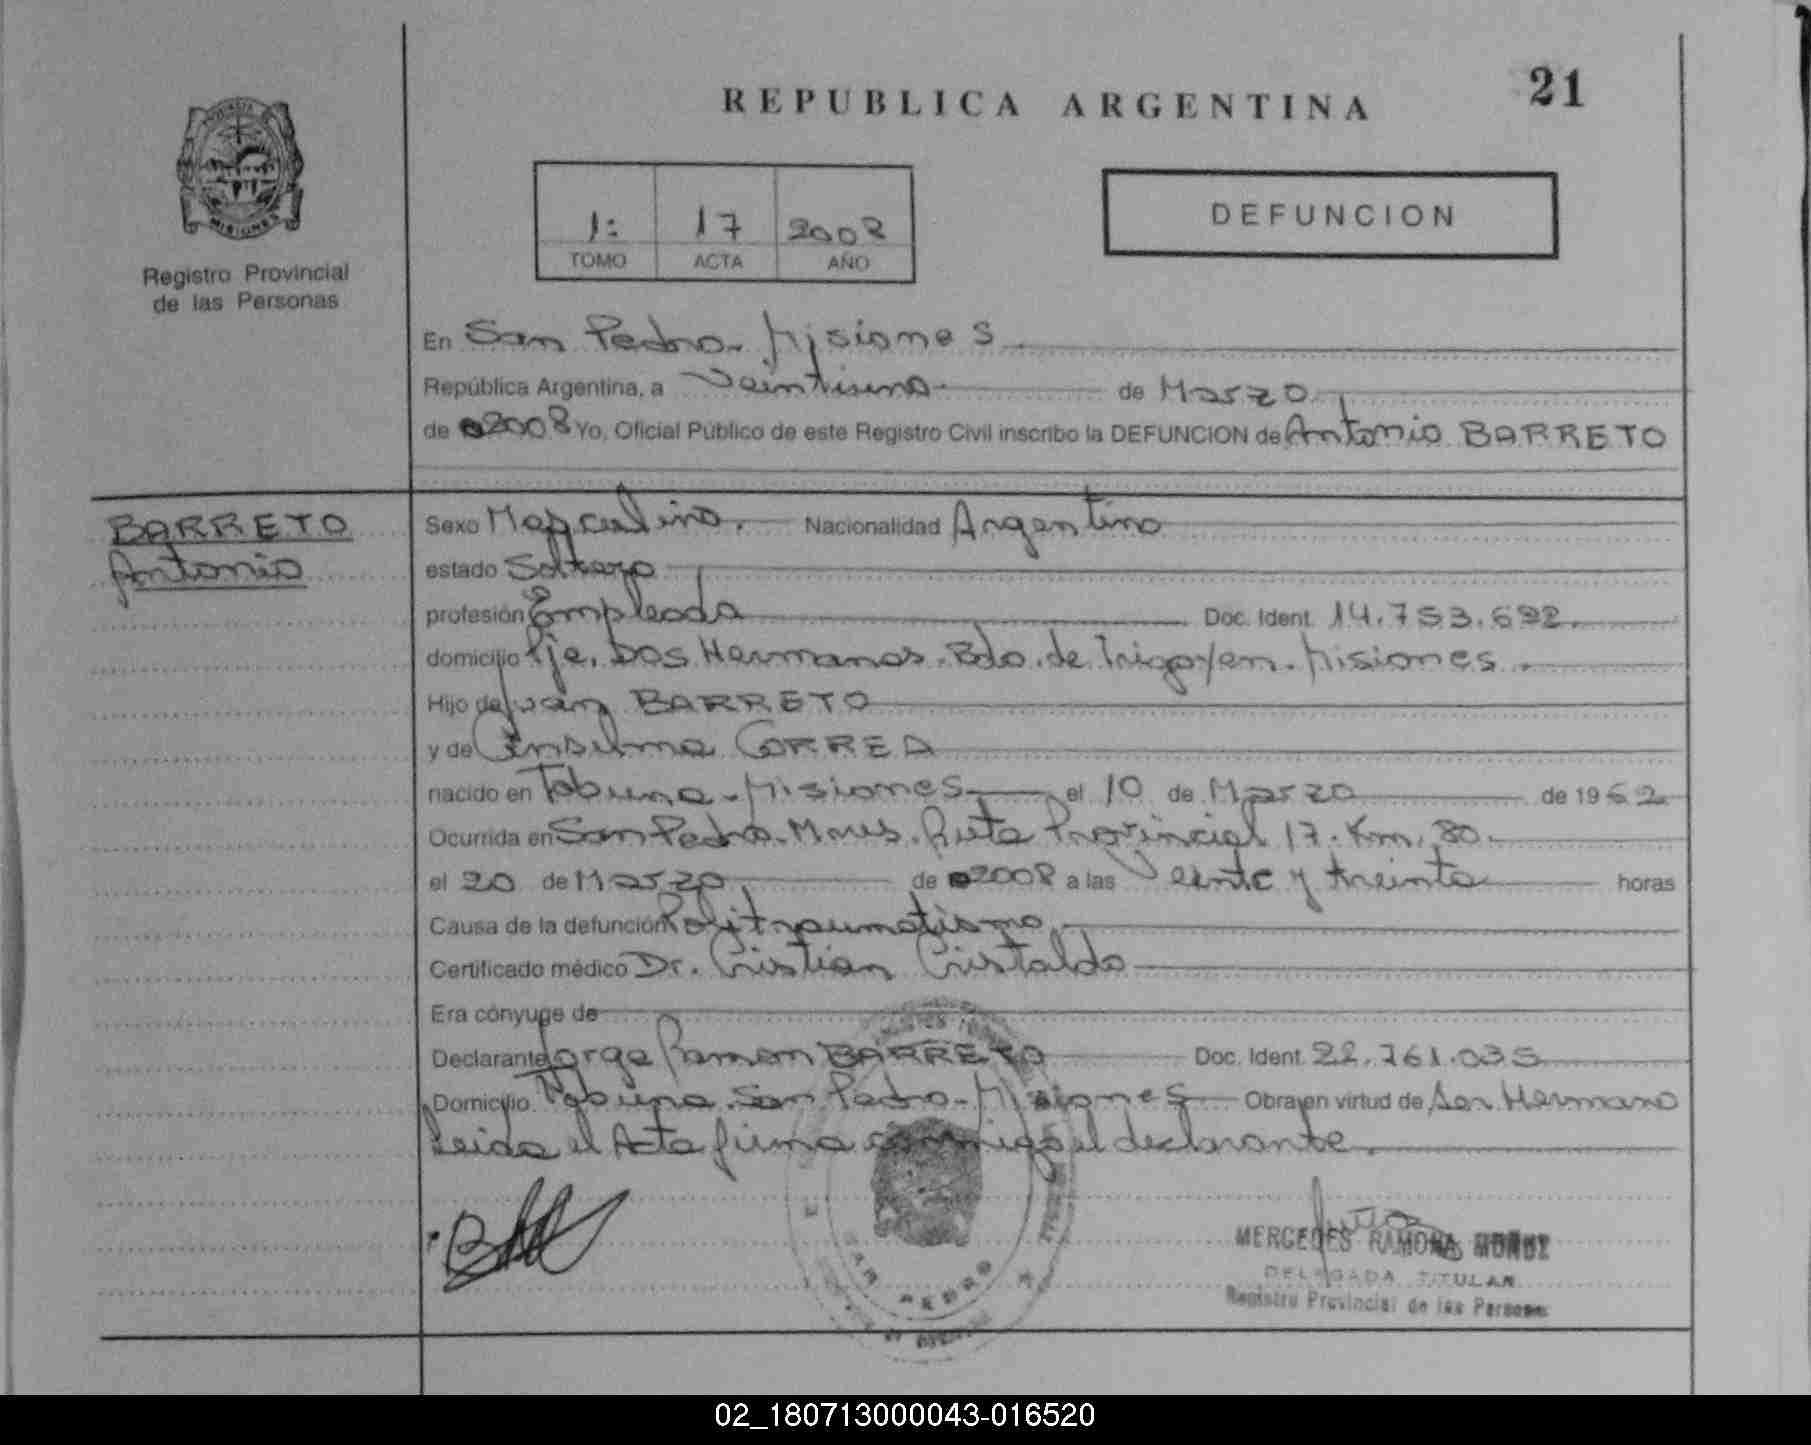 REPUBLICA ARGENTINA
21
PROVINCIA
MISIONES
Registro Provincial
de las Personas
1: 17 2008
TOMO ACTA AÑO
DEFUNCION
En San Pedro - Misiones
República Argentina, a Veintiuno de Marzo
de 2008 Yo, Oficial Público de este Registro Civil inscribo la DEFUNCION de Antonio BARRETO
BARRETO
Antonio
Sexo Masculino. Nacionalidad Argentino
estado Soltero
profesión Empleado Doc. Ident. 14.753.692
domicilio Pje. Dos Hermanas. Bdo. de Irigoyen. Misiones.
Hijo de Juan BARRETO
y de Anselma CORREA
nacido en Tobuna - Misiones el 10 de Marzo de 1962
Ocurrida en San Pedro - Mnes. Ruta Provincial 17. Km. 80.
el 20 de Marzo de 2008 a las Veinte y treinta horas
Causa de la defunción Politraumatismo
Certificado médico Dr. Cristian Cristaldo
Era cónyuge de
Declarante Jorge Ramon BARRETO Doc. Ident. 22.761.035
Domicilio Tobuna. San Pedro - Misiones Obra en virtud de Ser Hermano
Leida el Acta firma conmigo el declarante.
SAN PEDRO
MERCEDES RAMONA MUÑOZ
DELEGADA TITULAR
Registro Provincial de las Personas
02_180713000043-016520